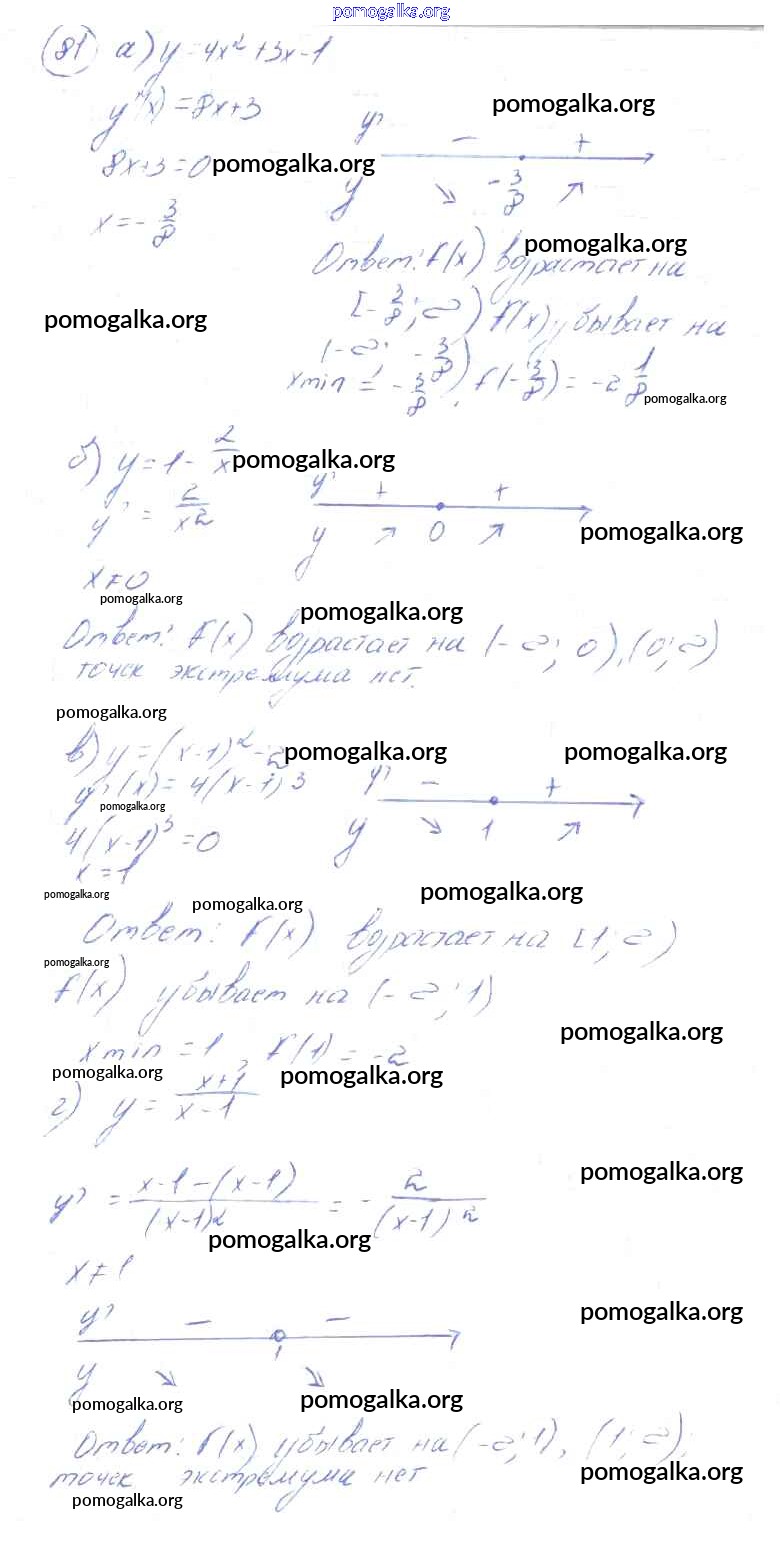 pomogalka.org
81 а) y = 4x² + 3x - 1
y'(x) = 8x + 3
pomogalka.org
y' - +
8x + 3 = 0 pomogalka.org
y ↘ -3/8 ↗
x = -3/8
pomogalka.org
Ответ: f(x) возрастает на
[-3/8; ∞) f(x) убывает на
pomogalka.org
(-∞; -3/8)
xmin = -3/8, f(-3/8) = -2 1/8
pomogalka.org
б) y = 1 - 2/x pomogalka.org
y' + +
y' = 2/x²
y ↗ 0 ↗ pomogalka.org
x ≠ 0
pomogalka.org
pomogalka.org
Ответ: f(x) возрастает на (-∞; 0), (0; ∞)
точек экстремума нет.
pomogalka.org
в) y = (x-1)² - 2 pomogalka.org pomogalka.org
y'(x) = 4(x-1)3
y' - +
pomogalka.org
4(x-1)³ = 0
y ↘ 1 ↗
x = 1
pomogalka.org pomogalka.org pomogalka.org
Ответ: f(x) возрастает на [1; ∞)
pomogalka.org
f(x) убывает на (-∞; 1)
pomogalka.org
xmin = 1, f(1) = -2
pomogalka.org pomogalka.org
г) y = x+1/x-1
pomogalka.org
y' = x-1-(x-1)/(x-1)2 = -2/(x-1)²
pomogalka.org
x ≠ 1
pomogalka.org
y' - -
1
y ↘ ↘
pomogalka.org pomogalka.org
Ответ: f(x) убывает на (-∞; 1), (1; ∞);
точек экстремума нет pomogalka.org
pomogalka.org